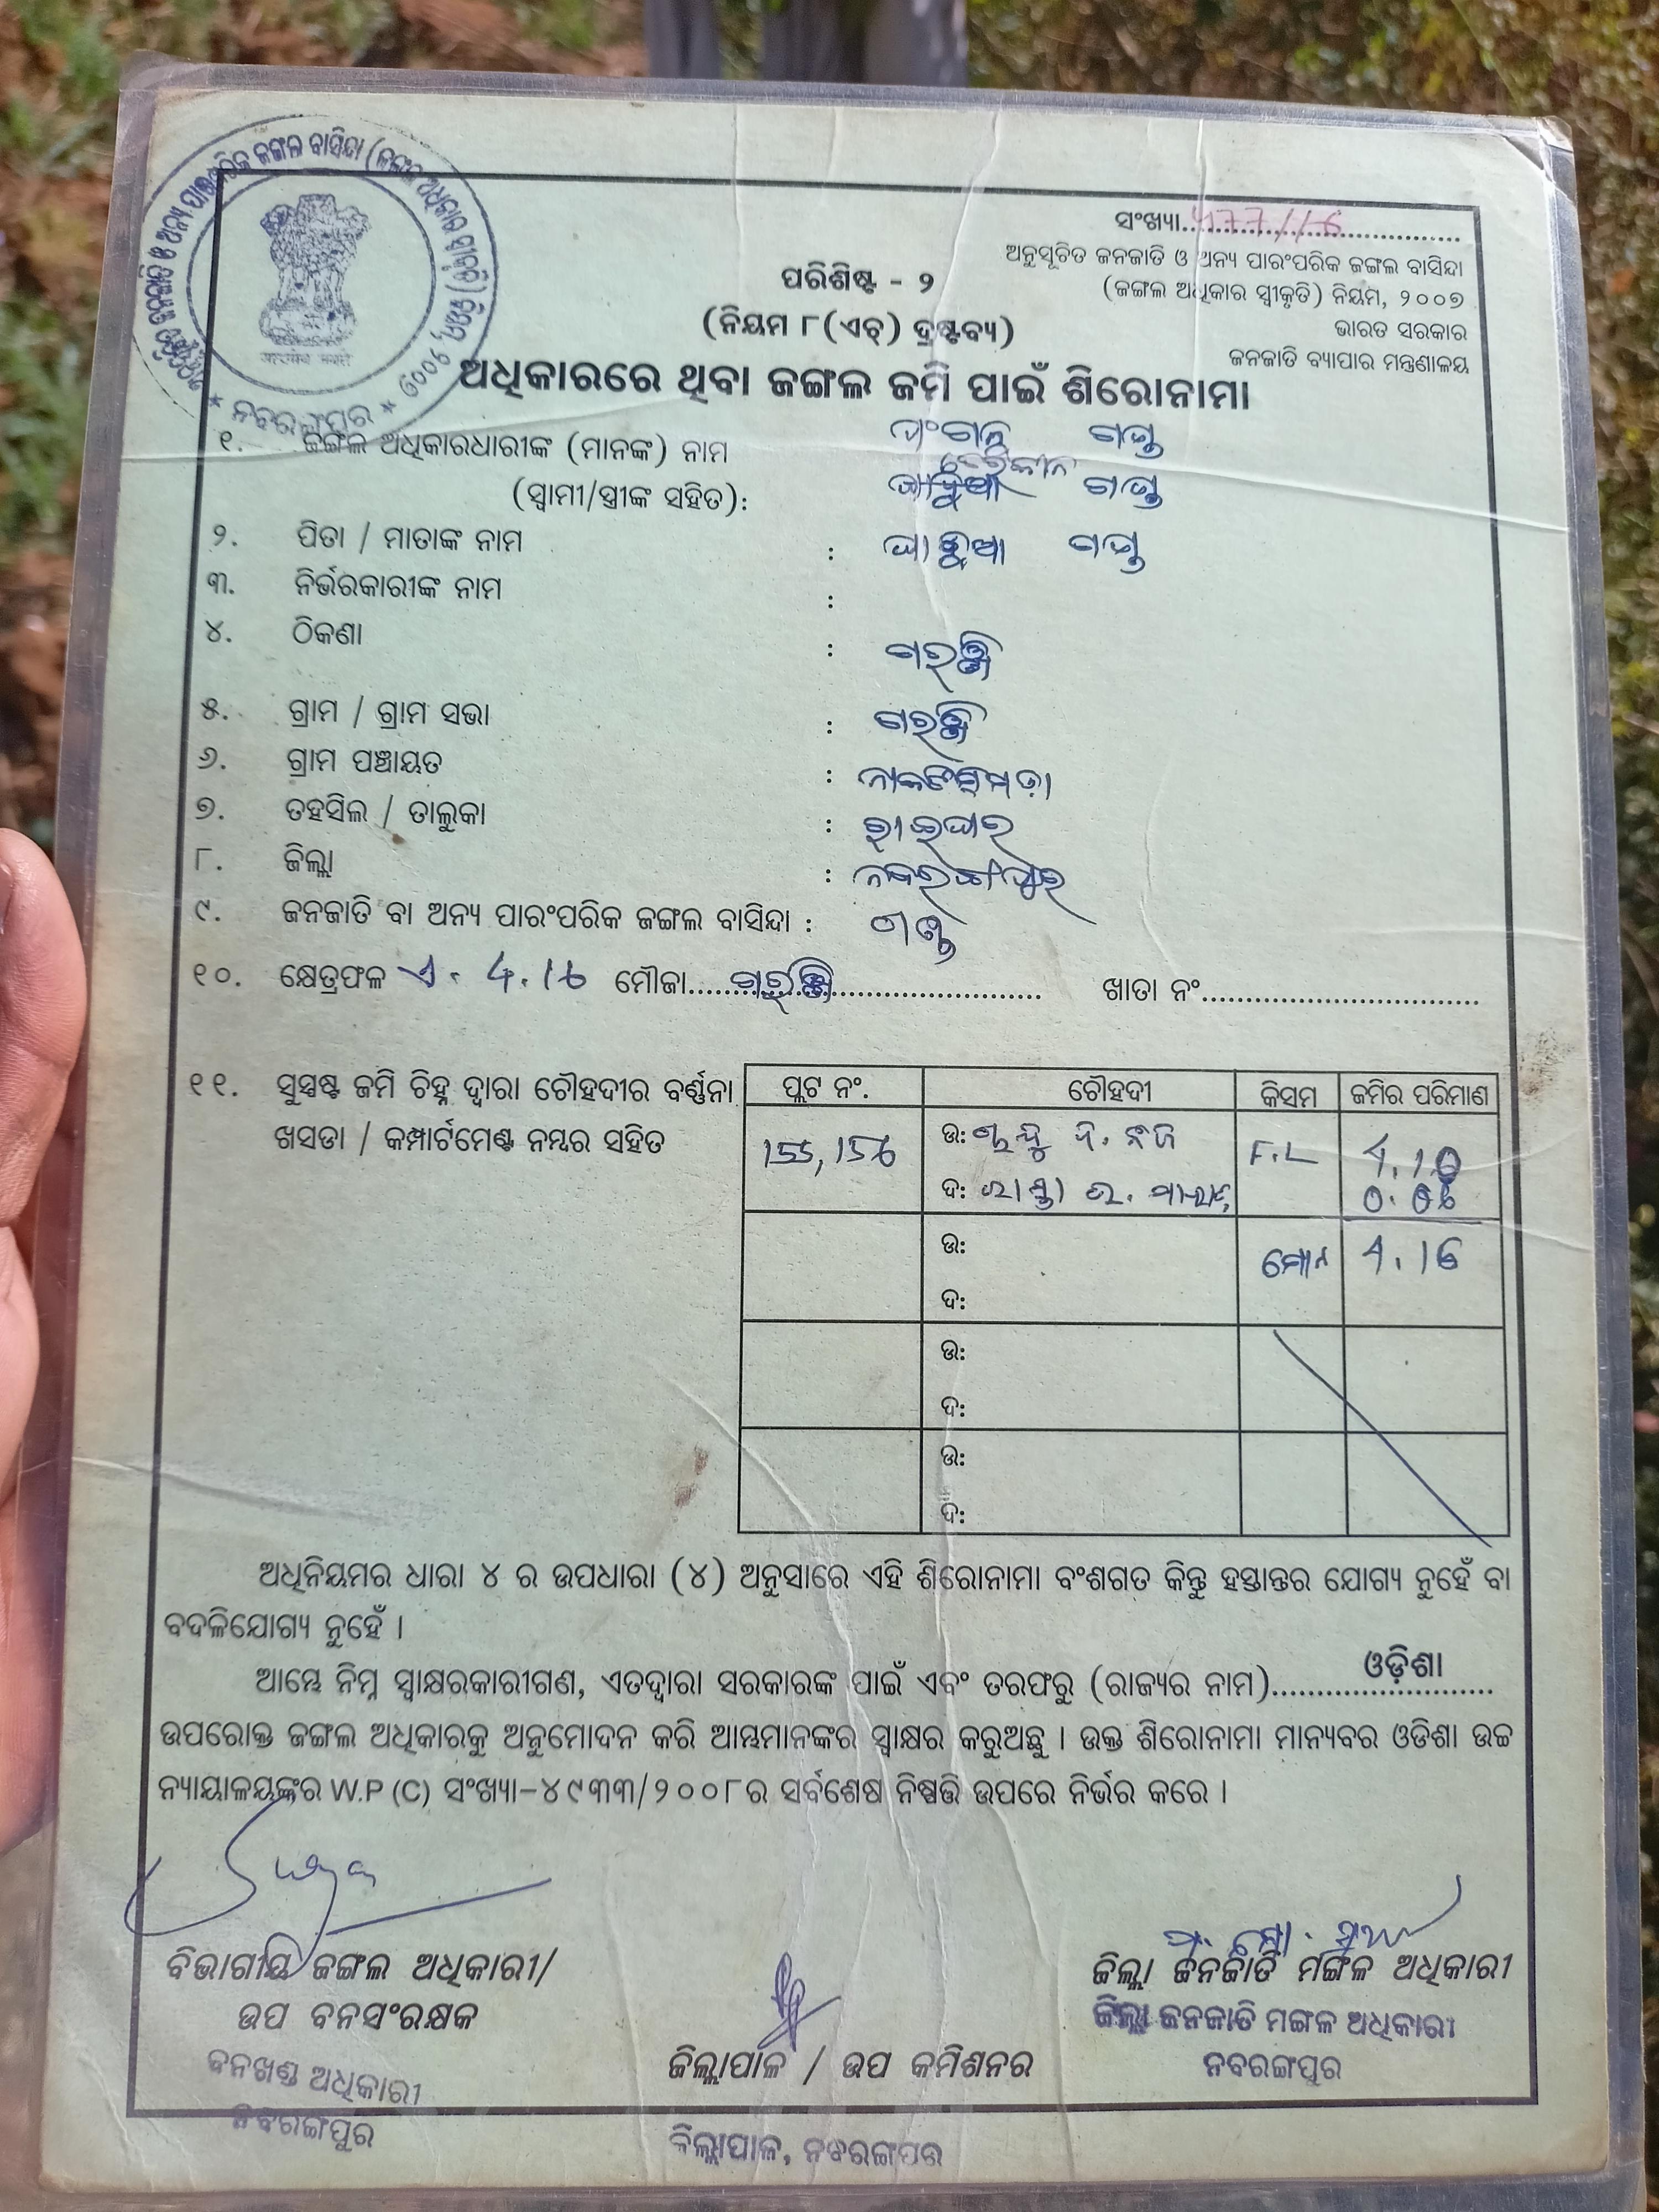 ସଂଖ୍ୟା....................................
ଅନୁସୂଚିତ ଜନଜାତି ଓ ଅନ୍ୟ ପାରଂପରିକ ଜଙ୍ଗଲ ବାସିନ୍ଦା
(ଜଙ୍ଗଲ ଅଧିକାର ସ୍ୱୀକୃତି) ନିୟମ, ୨୦୦୭
ଭାରତ ସରକାର
ଜନଜାତି ବ୍ୟାପାର ମନ୍ତ୍ରଣାଳୟ
ପରିଶିଷ୍ଟ - ୨
(ନିୟମ ୮(ଏଚ୍) ଦ୍ରଷ୍ଟବ୍ୟ)
ଅଧିକାରରେ ଥିବା ଜଙ୍ଗଲ ଜମି ପାଇଁ ଶିରୋନାମା
ନବରଙ୍ଗପୁର
୧. ଜଙ୍ଗଲ ଅଧିକାରଧାରୀଙ୍କ (ମାନଙ୍କ) ନାମ ଗଣ୍ଡ
(ସ୍ୱାମୀ/ସ୍ତ୍ରୀଙ୍କ ସହିତ): ଗଣ୍ଡ
୨. ପିତା / ମାତାଙ୍କ ନାମ : ଗଣ୍ଡ
୩. ନିର୍ଭରକାରୀଙ୍କ ନାମ :
୪. ଠିକଣା :
୫. ଗ୍ରାମ / ଗ୍ରାମ ସଭା :
୬. ଗ୍ରାମ ପଞ୍ଚାୟତ :
୭. ତହସିଲ / ତାଲୁକା : ରାଇଘର
୮. ଜିଲ୍ଲା : ନବରଙ୍ଗପୁର
୯. ଜନଜାତି ବା ଅନ୍ୟ ପାରଂପରିକ ଜଙ୍ଗଲ ବାସିନ୍ଦା : ଗଣ୍ଡ
୧୦. କ୍ଷେତ୍ରଫଳ ଏ. 4.16 ମୌଜା.................................... ଖାତା ନଂ................................
୧୧. ସୁସ୍ପଷ୍ଟ ଜମି ଚିହ୍ନ ଦ୍ୱାରା ଚୌହଦୀର ବର୍ଣ୍ଣନା
ଖସଡା / କମ୍ପାର୍ଟମେଣ୍ଟ ନମ୍ବର ସହିତ
ପ୍ଲଟ ନଂ. ଚୌହଦୀ କିସମ ଜମିର ପରିମାଣ
155, 156 ଉ: F.L 4.10
ଦ: 0.06
ଉ: ମୋଟ 4.16
ଦ:
ଉ:
ଦ:
ଉ:
ଦ:
ଅଧିନିୟମର ଧାରା ୪ ର ଉପଧାରା (୪) ଅନୁସାରେ ଏହି ଶିରୋନାମା ବଂଶଗତ କିନ୍ତୁ ହସ୍ତାନ୍ତର ଯୋଗ୍ୟ ନୁହେଁ ବା
ବଦଳିଯୋଗ୍ୟ ନୁହେଁ ।
ଆମ୍ଭେ ନିମ୍ନ ସ୍ୱାକ୍ଷରକାରୀଗଣ, ଏତଦ୍ୱାରା ସରକାରଙ୍କ ପାଇଁ ଏବଂ ତରଫରୁ (ରାଜ୍ୟର ନାମ)......ଓଡ଼ିଶା......
ଉପରୋକ୍ତ ଜଙ୍ଗଲ ଅଧିକାରକୁ ଅନୁମୋଦନ କରି ଆମ୍ଭମାନଙ୍କର ସ୍ୱାକ୍ଷର କରୁଅଛୁ । ଉକ୍ତ ଶିରୋନାମା ମାନ୍ୟବର ଓଡିଶା ଉଚ୍ଚ
ନ୍ୟାୟାଳୟଙ୍କର W.P (C) ସଂଖ୍ୟା-୪୯୩୩/୨୦୦୮ର ସର୍ବଶେଷ ନିଷ୍ପତ୍ତି ଉପରେ ନିର୍ଭର କରେ ।
ବିଭାଗୀୟ ଜଙ୍ଗଲ ଅଧିକାରୀ/
ଉପ ବନସଂରକ୍ଷକ
ବନଖଣ୍ଡ ଅଧିକାରୀ
ନବରଙ୍ଗପୁର
ଜିଲ୍ଲାପାଳ / ଉପ କମିଶନର
ଜିଲ୍ଲାପାଳ, ନବରଙ୍ଗପୁର
ଜିଲ୍ଲା ଜନଜାତି ମଙ୍ଗଳ ଅଧିକାରୀ
ଜିଲ୍ଲା ଜନଜାତି ମଙ୍ଗଳ ଅଧିକାରୀ
ନବରଙ୍ଗପୁର